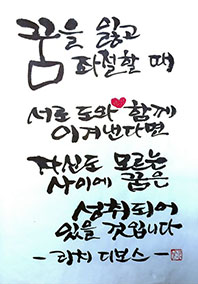 꿈을 잃고
좌절할 때
서로 도와 함께
이겨낸다면
자신도 모르는
사이에 꿈은
성취되어
있을 것입니다
- 리치 디보스 -